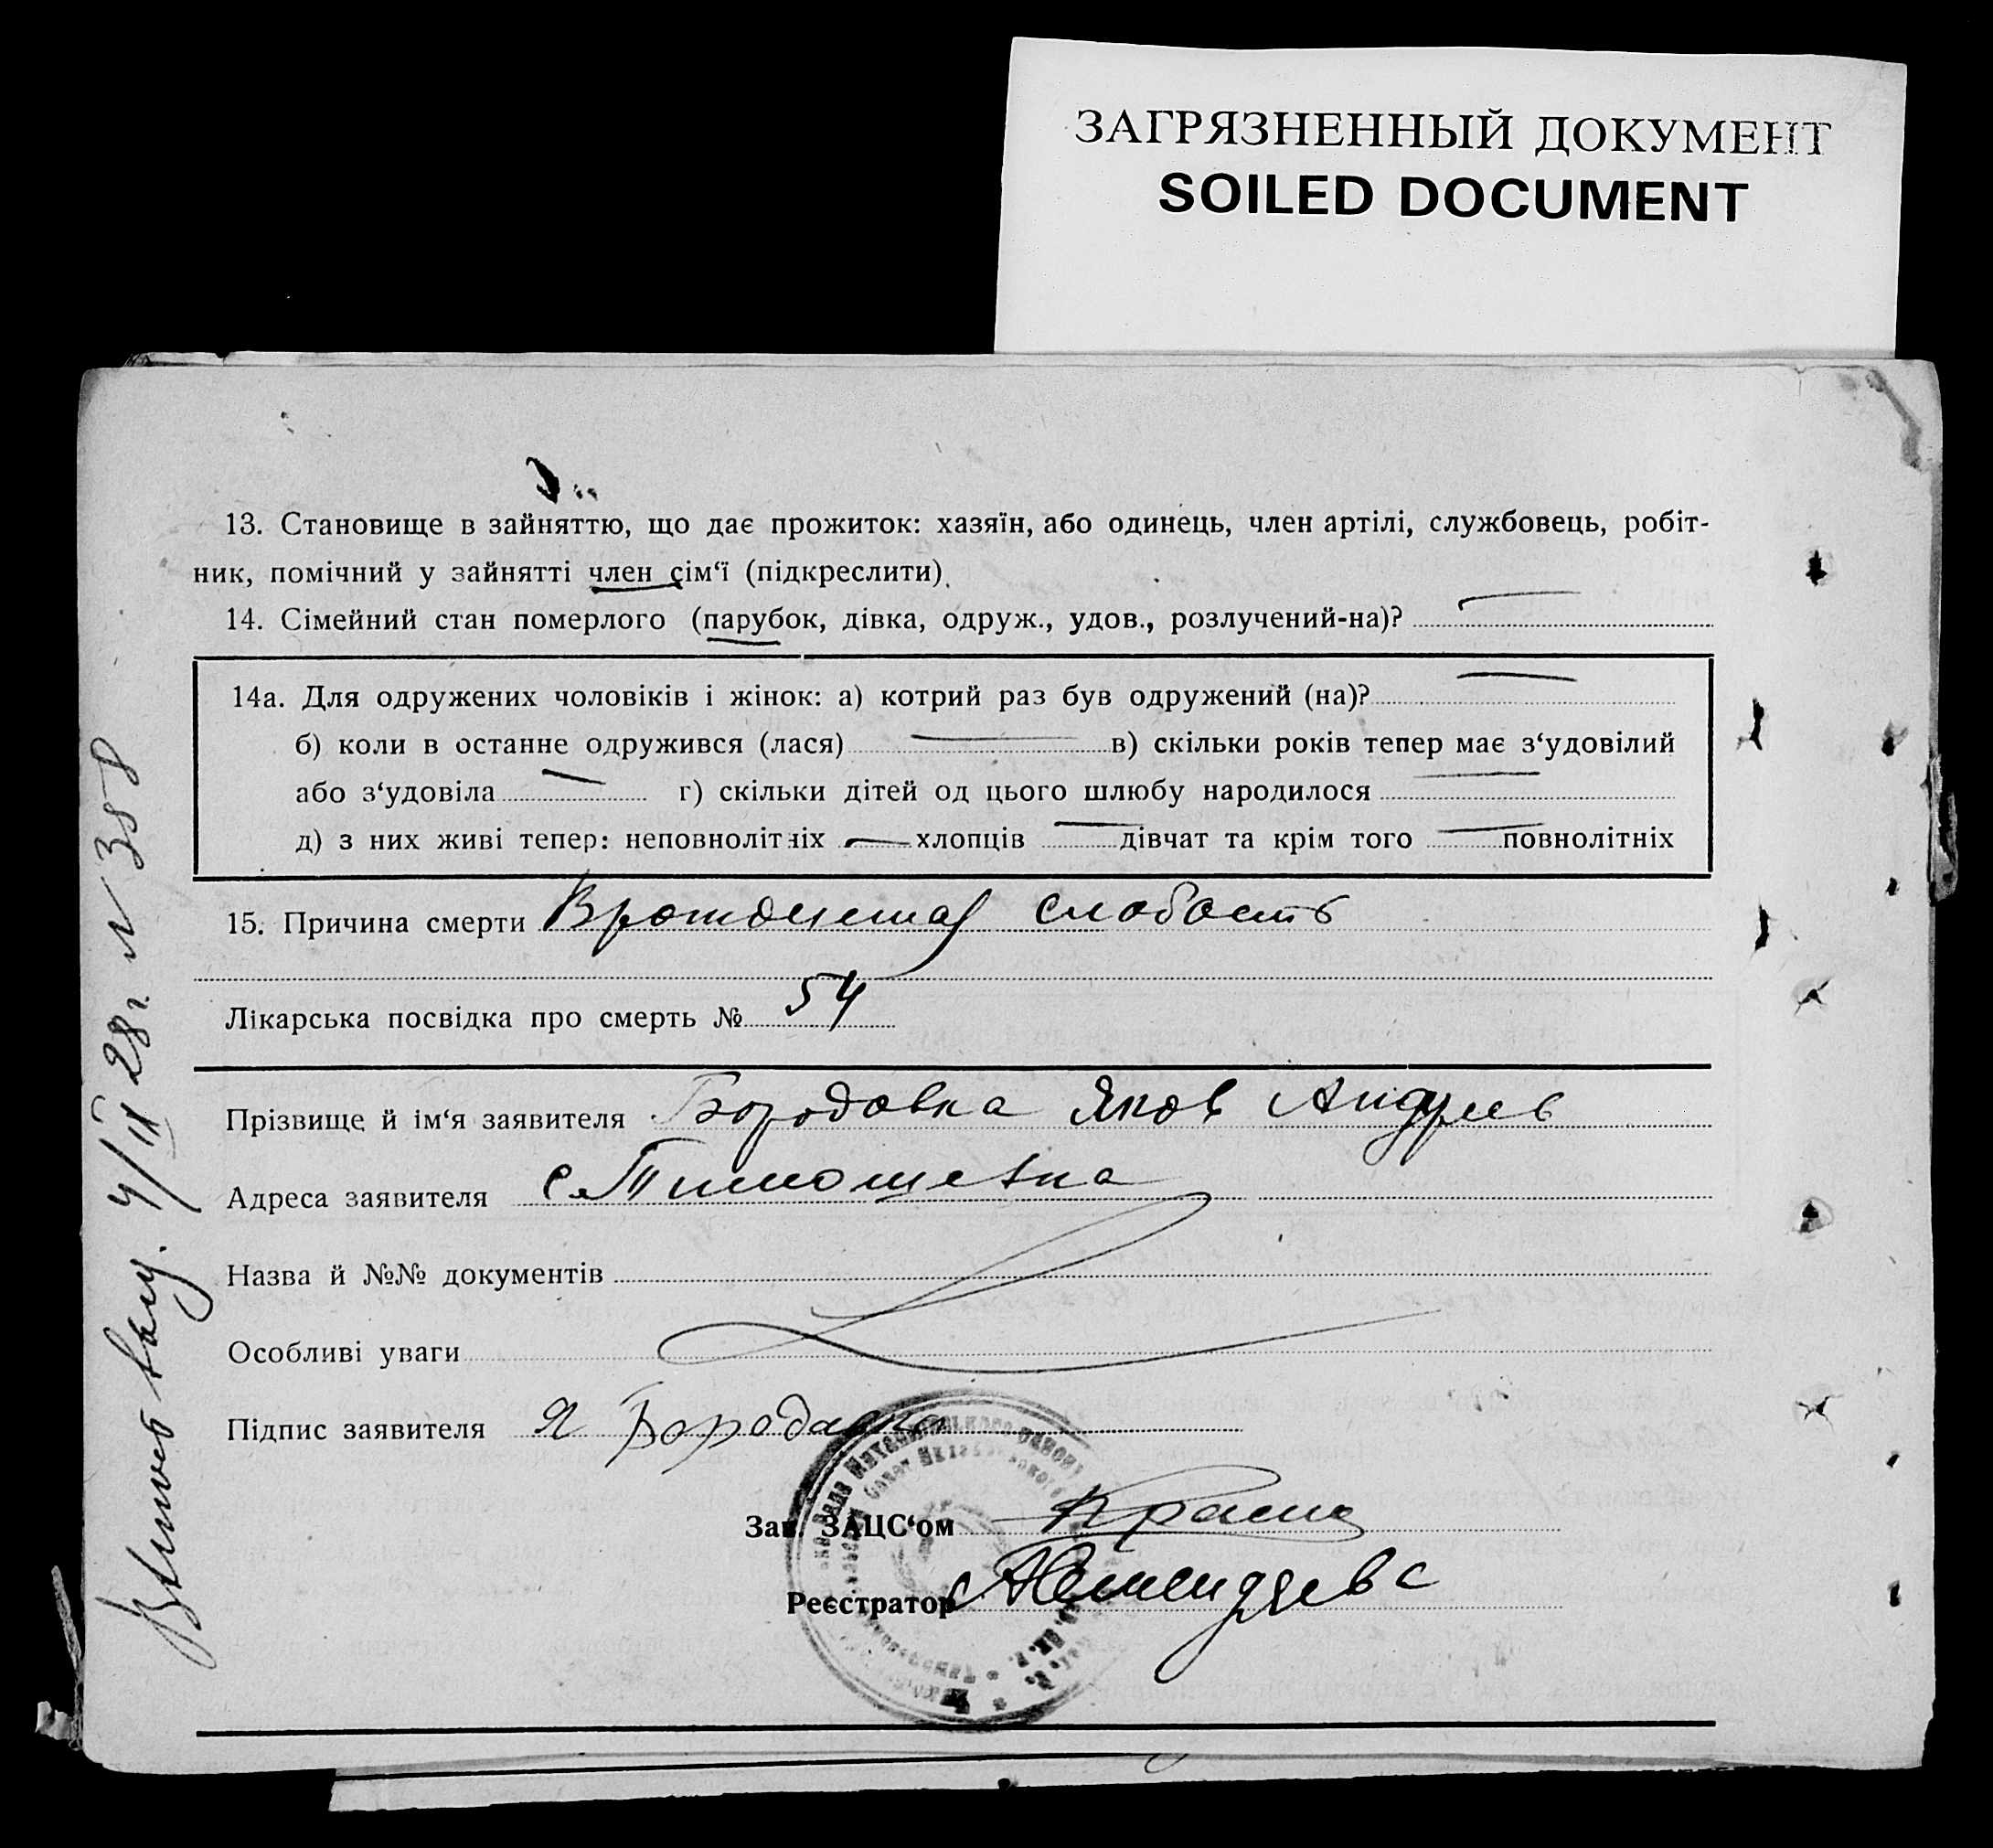 ЗАГРЯЗНЕННЫЙ ДОКУМЕНТ
SOILED DOCUMENT
13. Становище в зайняттю, що дає прожиток: хазяїн, або одинець, член артілі, службовець, робіт-
ник, помічний у зайнятті член сім‘ї (підкреслити).
14. Сімейний стан померлого (парубок, дівка, одруж., удов., розлучений-на)?
14а. Для одружених чоловіків і жінок: а) котрий раз був одружений (на)?
б) коли в останне одружився (лася) в) скільки років тепер має з‘удовілий
або з‘удовіла г) скільки дітей од цього шлюбу народилося
д) з них живі тепер: неповнолітніх хлопців дівчат та крім того повнолітніх
15. Причина смерти Врожденная слабость
Лікарська посвідка про смерть № 54
Прізвище й ім‘я заявителя Бородавка Яков Андреев
Адреса заявителя с. Тимошевка
Назва й №№ документів
Особливі уваги
Підпис заявителя Я Бородавка
Зав. ЗАЦС‘ом
Реєстратор
28 г. N 358